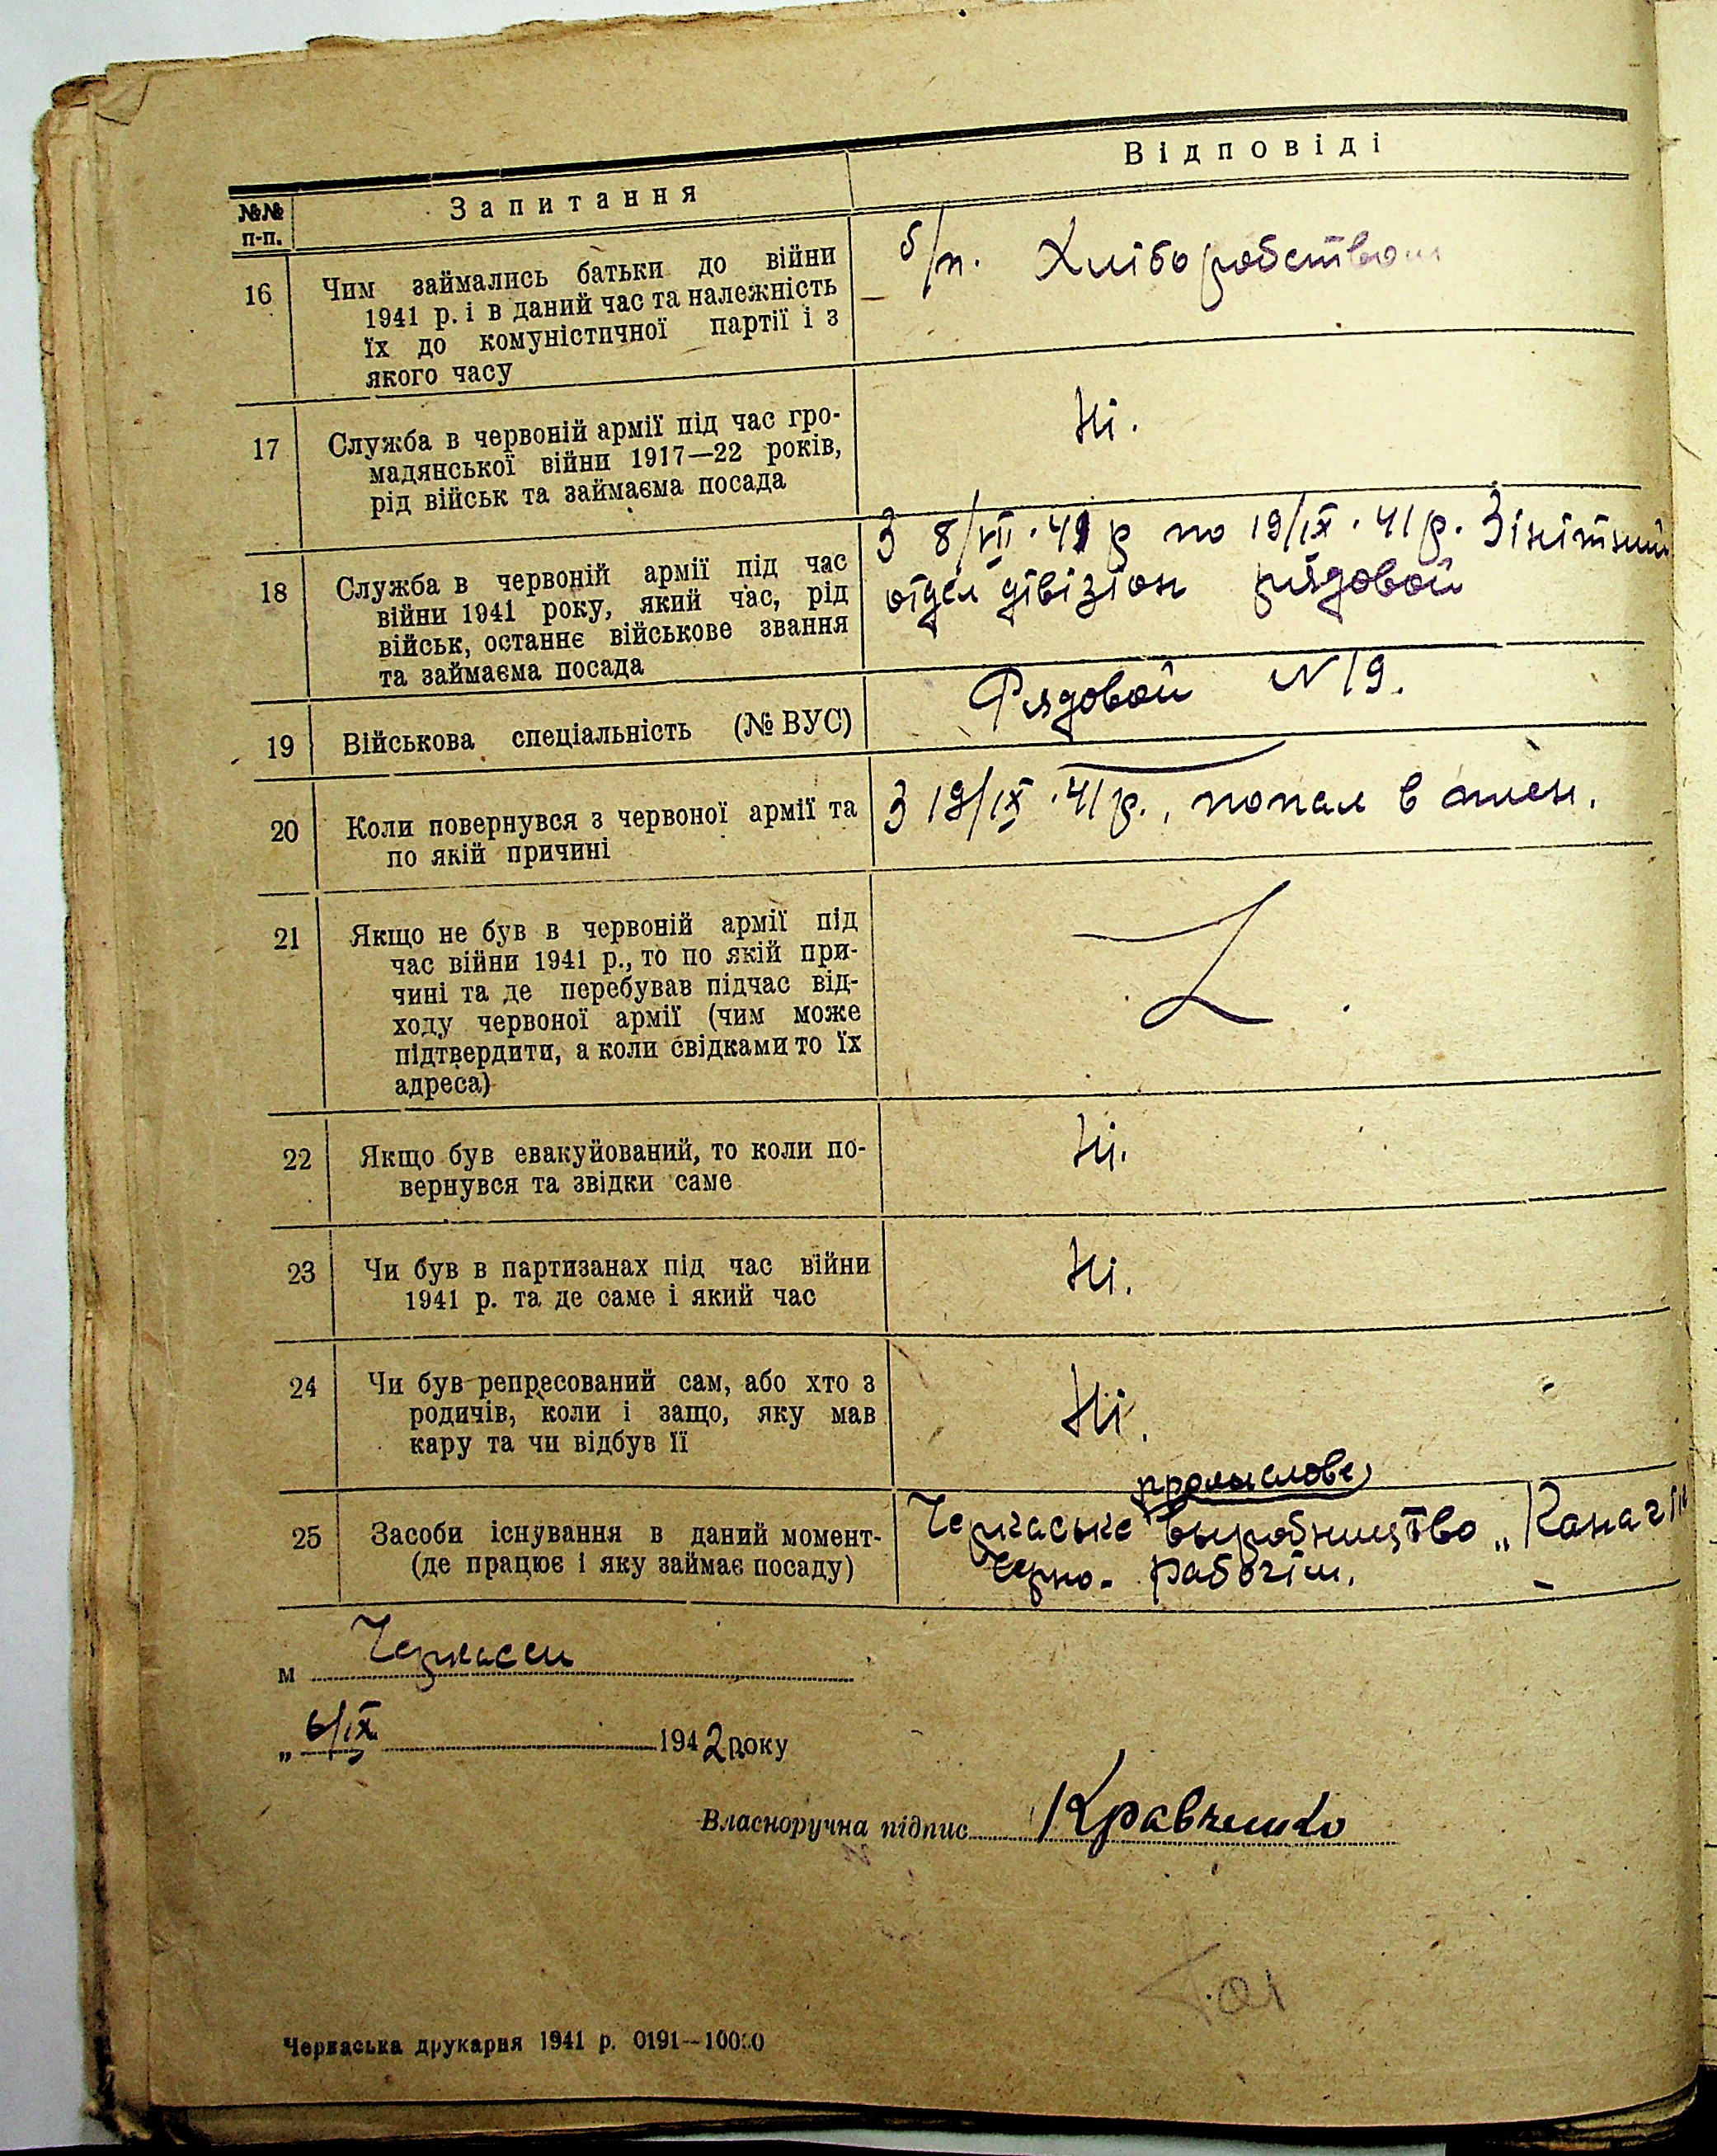 №№ п-п.
Запитання
Відповіді
16
Чим займались батьки до війни
1941 р. і в даний час та належність
їх до комуністичної партії і з
якого часу
б/п. Хліборобством
17
Служба в червоній армії під час гро-
мадянської війни 1917—22 років,
рід військ та займаєма посада
Ні.
18
Служба в червоній армії під час
війни 1941 року, який час, рід
військ, останнє військове звання
та займаєма посада
З 8/VII.41 р по 19/IX.41 р. Зінітний
отдел дівізіон рядовой
19
Військова спеціальність (№ ВУС)
Рядовой N 19.
20
Коли повернувся з червоної армії та
по якій причині
З 19/IX.41 р., попал в плен.
21
Якщо не був в червоній армії під
час війни 1941 р., то по якій при-
чині та де перебував підчас від-
ходу червоної армії (чим може
підтвердити, а коли свідками то їх
адреса)
22
Якщо був евакуйований, то коли по-
вернувся та звідки саме
Ні.
23
Чи був в партизанах під час війни
1941 р. та де саме і який час
Ні.
24
Чи був репресований сам, або хто з
родичів, коли і защо, яку мав
кару та чи відбув її
Ні.
25
Засоби існування в даний момент-
(де працює і яку займає посаду)
промыслове
Черкаське выробництво
Черно-рабочім.
м Черкассы
„ 6/IX 1942 року
Власноручна підпис Кравченко
Черкаська друкарня 1941 р. 0191—10000